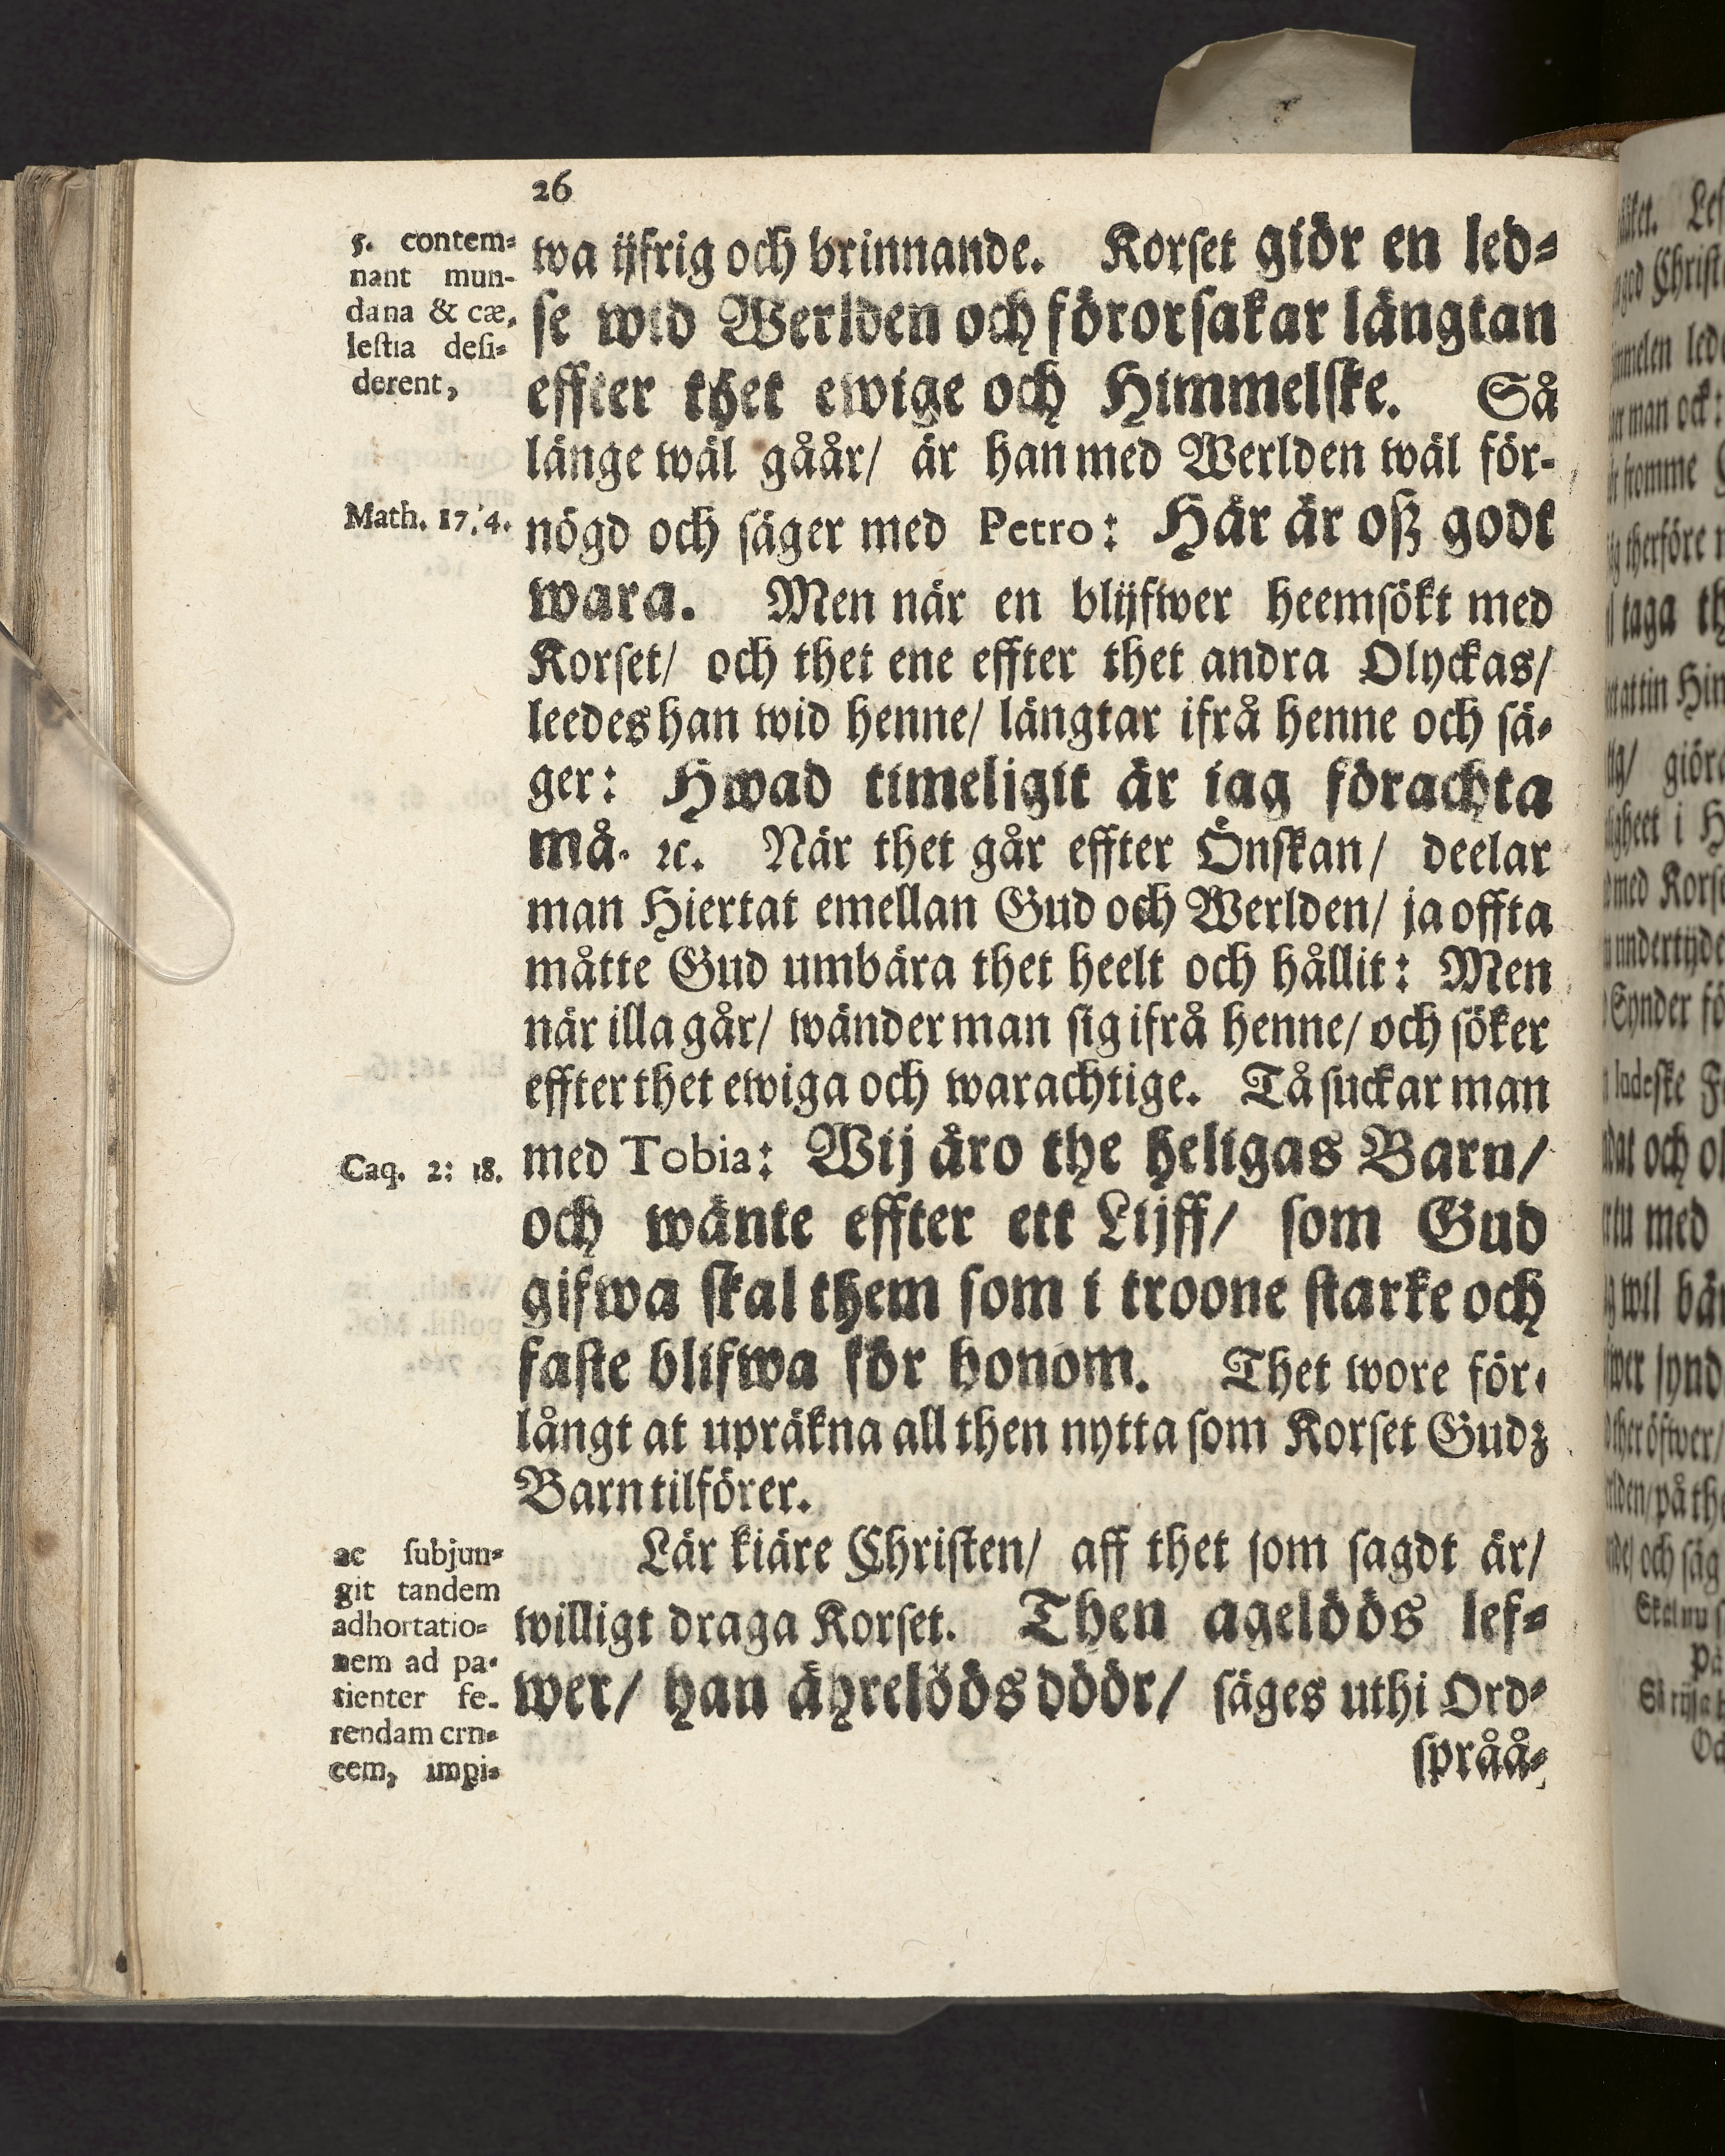 26
wa ijfrig och brinnande. Korſet giör en led⸗
ſe wid Werlden och förorſakar längtan
effter thet ewige och Himmelſke. Så
länge wäl gåår/ är han med Werlden wäl för-
nögd och ſäger med Petro: Här är oſz godt
wara. Men när en blijfwer heemſökt med
Korſet/ och thet ene effter thet andra Olyckas/
leedes han wid henne/ längtar ifrå henne och ſä⸗
ger: Hwad timeligit är iag förachta
må. ꝛc. När thet går effter Önſkan/ deelar
man Hiertat emellan Gud och Werlden/ ja offta
måtte Gud umbära thet heelt och hållit: Men
när illa går/ wänder man ſig ifrå henne/ och ſöker
effter thet ewiga och warachtige. Tå ſuckar man
med Tobia: Wij äro the heligas Barn/
och wänte effter ett Lijff/ ſom Gud
gifwa ſkal them ſom i troone ſtarke och
faſte blifwa för honom. Thet wore för⸗
långt at upräkna all then nytta ſom Korſet Gudz
Barn tilförer.
Lär kiäre Chriſten/ aff thet ſom ſagdt är/
willigt draga Korſet. Then agelöös lef⸗
wer/ han ährelöös döör/ ſäges uthi Ord⸗
ſpråå⸗
5. contem⸗
nant mun-
dana & cæ,
leſtia deſi⸗
derent,
Math. 17, 4.
Caq. 2: 18.
ac ſubjun⸗
git tandem
adhortatio⸗
nem ad pa⸗
tienter fe-
rendam crn⸗
cem, impi⸗